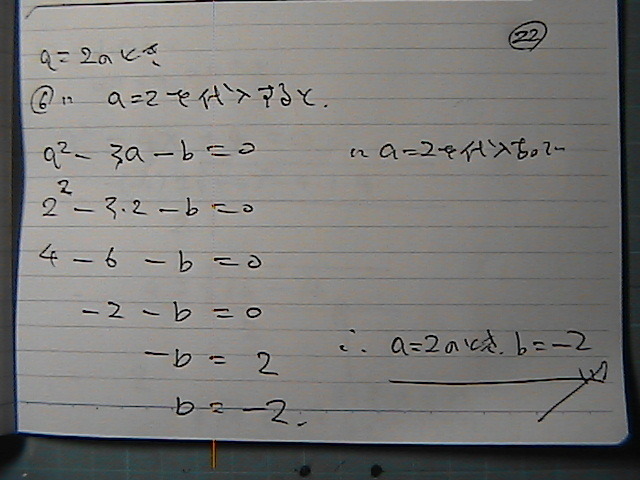 ㉒
a=2のとき、
⑥に a=2を代入すると.
a²-3a-b=0 に a=2を代入するの
2²-3・2-b=0
4-6-b=0
-2-b=0
-b=2
b=-2.
∴ a=2のとき. b=-2